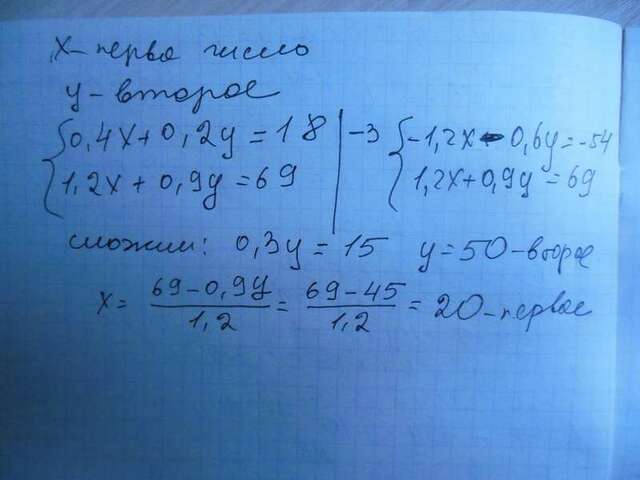 x - первое число
y - второе
{0,4x + 0,2y = 18 | -3 {-1,2x - 0,6y = -54
{1,2x + 0,9y = 69 | {1,2x + 0,9y = 69
сложим: 0,3y = 15 y = 50 - второе
x = (69 - 0,9y)/1,2 = (69 - 45)/1,2 = 20 - первое